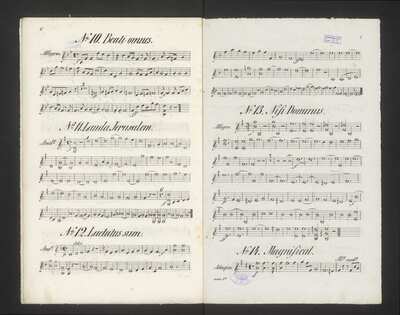 6
Nº 10. Beati omnes.
Allegro.
Nº 11. Lauda Jerusalem.
Andte
Nº 12. Laetatus sum.
Andte
solo
Nº 13. Nisi Dominus.
Allegro.
Nº 14. Magnificat.
Adagio.